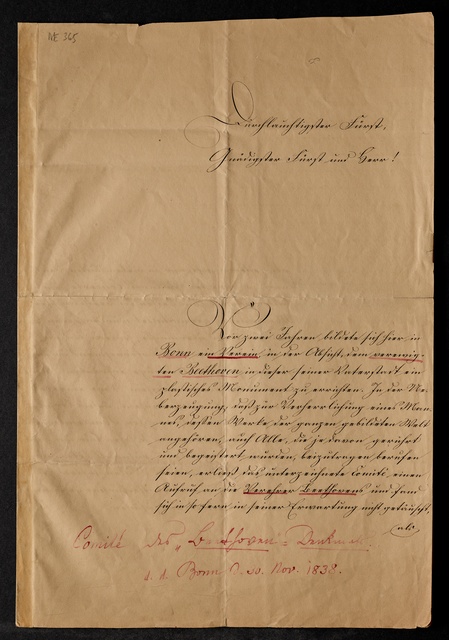 NE 365
Durchlauchtigster Fürst,
Gnädigster Fürst und Herr!
Vor zwei Jahren bildete sich hier in
Bonn ein Verein in der Absicht, dem verewig-
ten Beethoven in dieser seiner Vaterstadt ein
plastisches Monument zu errichten. In der Ue-
berzeugung, daß zur Verherrlichung eines Man-
nes, dessen Werke der ganzen gebildeten Welt
angehören, auch Alle, die je davon gerührt
und begeistert wurden, beizutragen berufen
seien, erließ das unterzeichnete Comité, einen
Aufruf an die Verehrer Beethovens und fand
sich in so fern in seiner Erwartung nicht getäuscht,
als
Comité des "Beethoven-Denkmals.
d. d. Bonn 30. Nov. 1838.